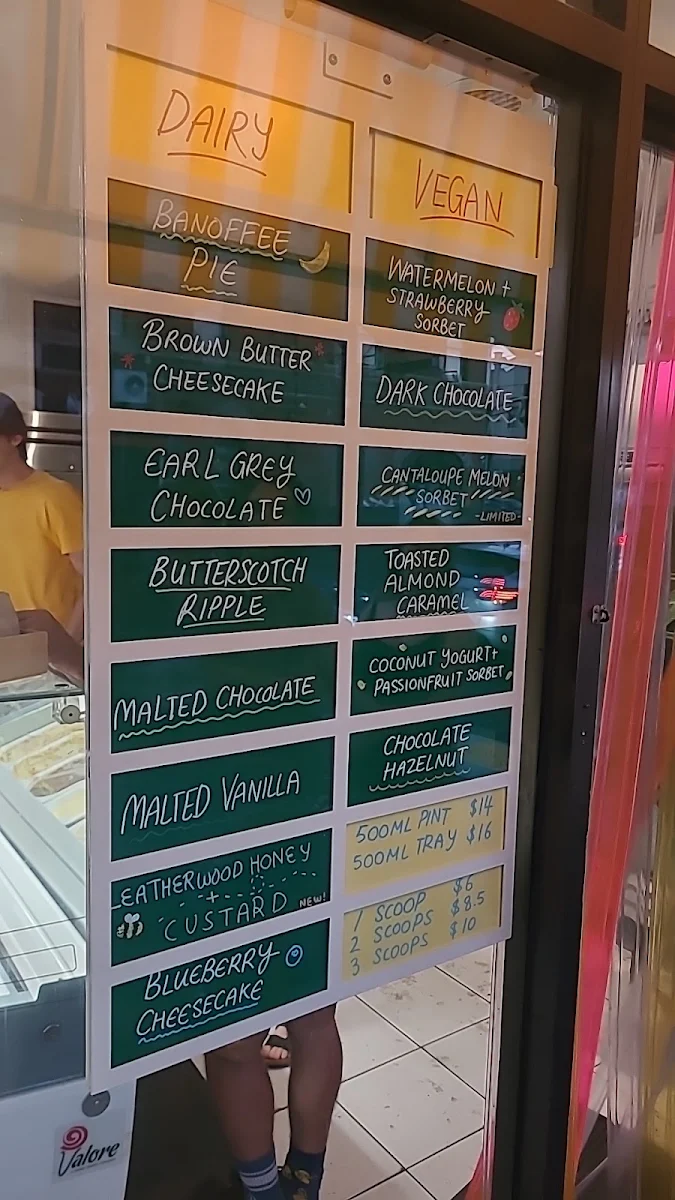 DAIRY
BANOFFEE
PIE
BROWN BUTTER
CHEESECAKE
EARL GREY
CHOCOLATE
BUTTERSCOTCH
RIPPLE
MALTED CHOCOLATE
MALTED VANILLA
LEATHERWOOD HONEY
+
CUSTARD NEW!
BLUEBERRY
CHEESECAKE
VEGAN
WATERMELON +
STRAWBERRY
SORBET
DARK CHOCOLATE
CANTALOUPE MELON
SORBET
-LIMITED-
TOASTED
ALMOND
CARAMEL
COCONUT YOGURT+
PASSIONFRUIT SORBET
CHOCOLATE
HAZELNUT
500ML PINT $14
500ML TRAY $16
1 SCOOP $6
2 SCOOPS $8.5
3 SCOOPS $10
Valore